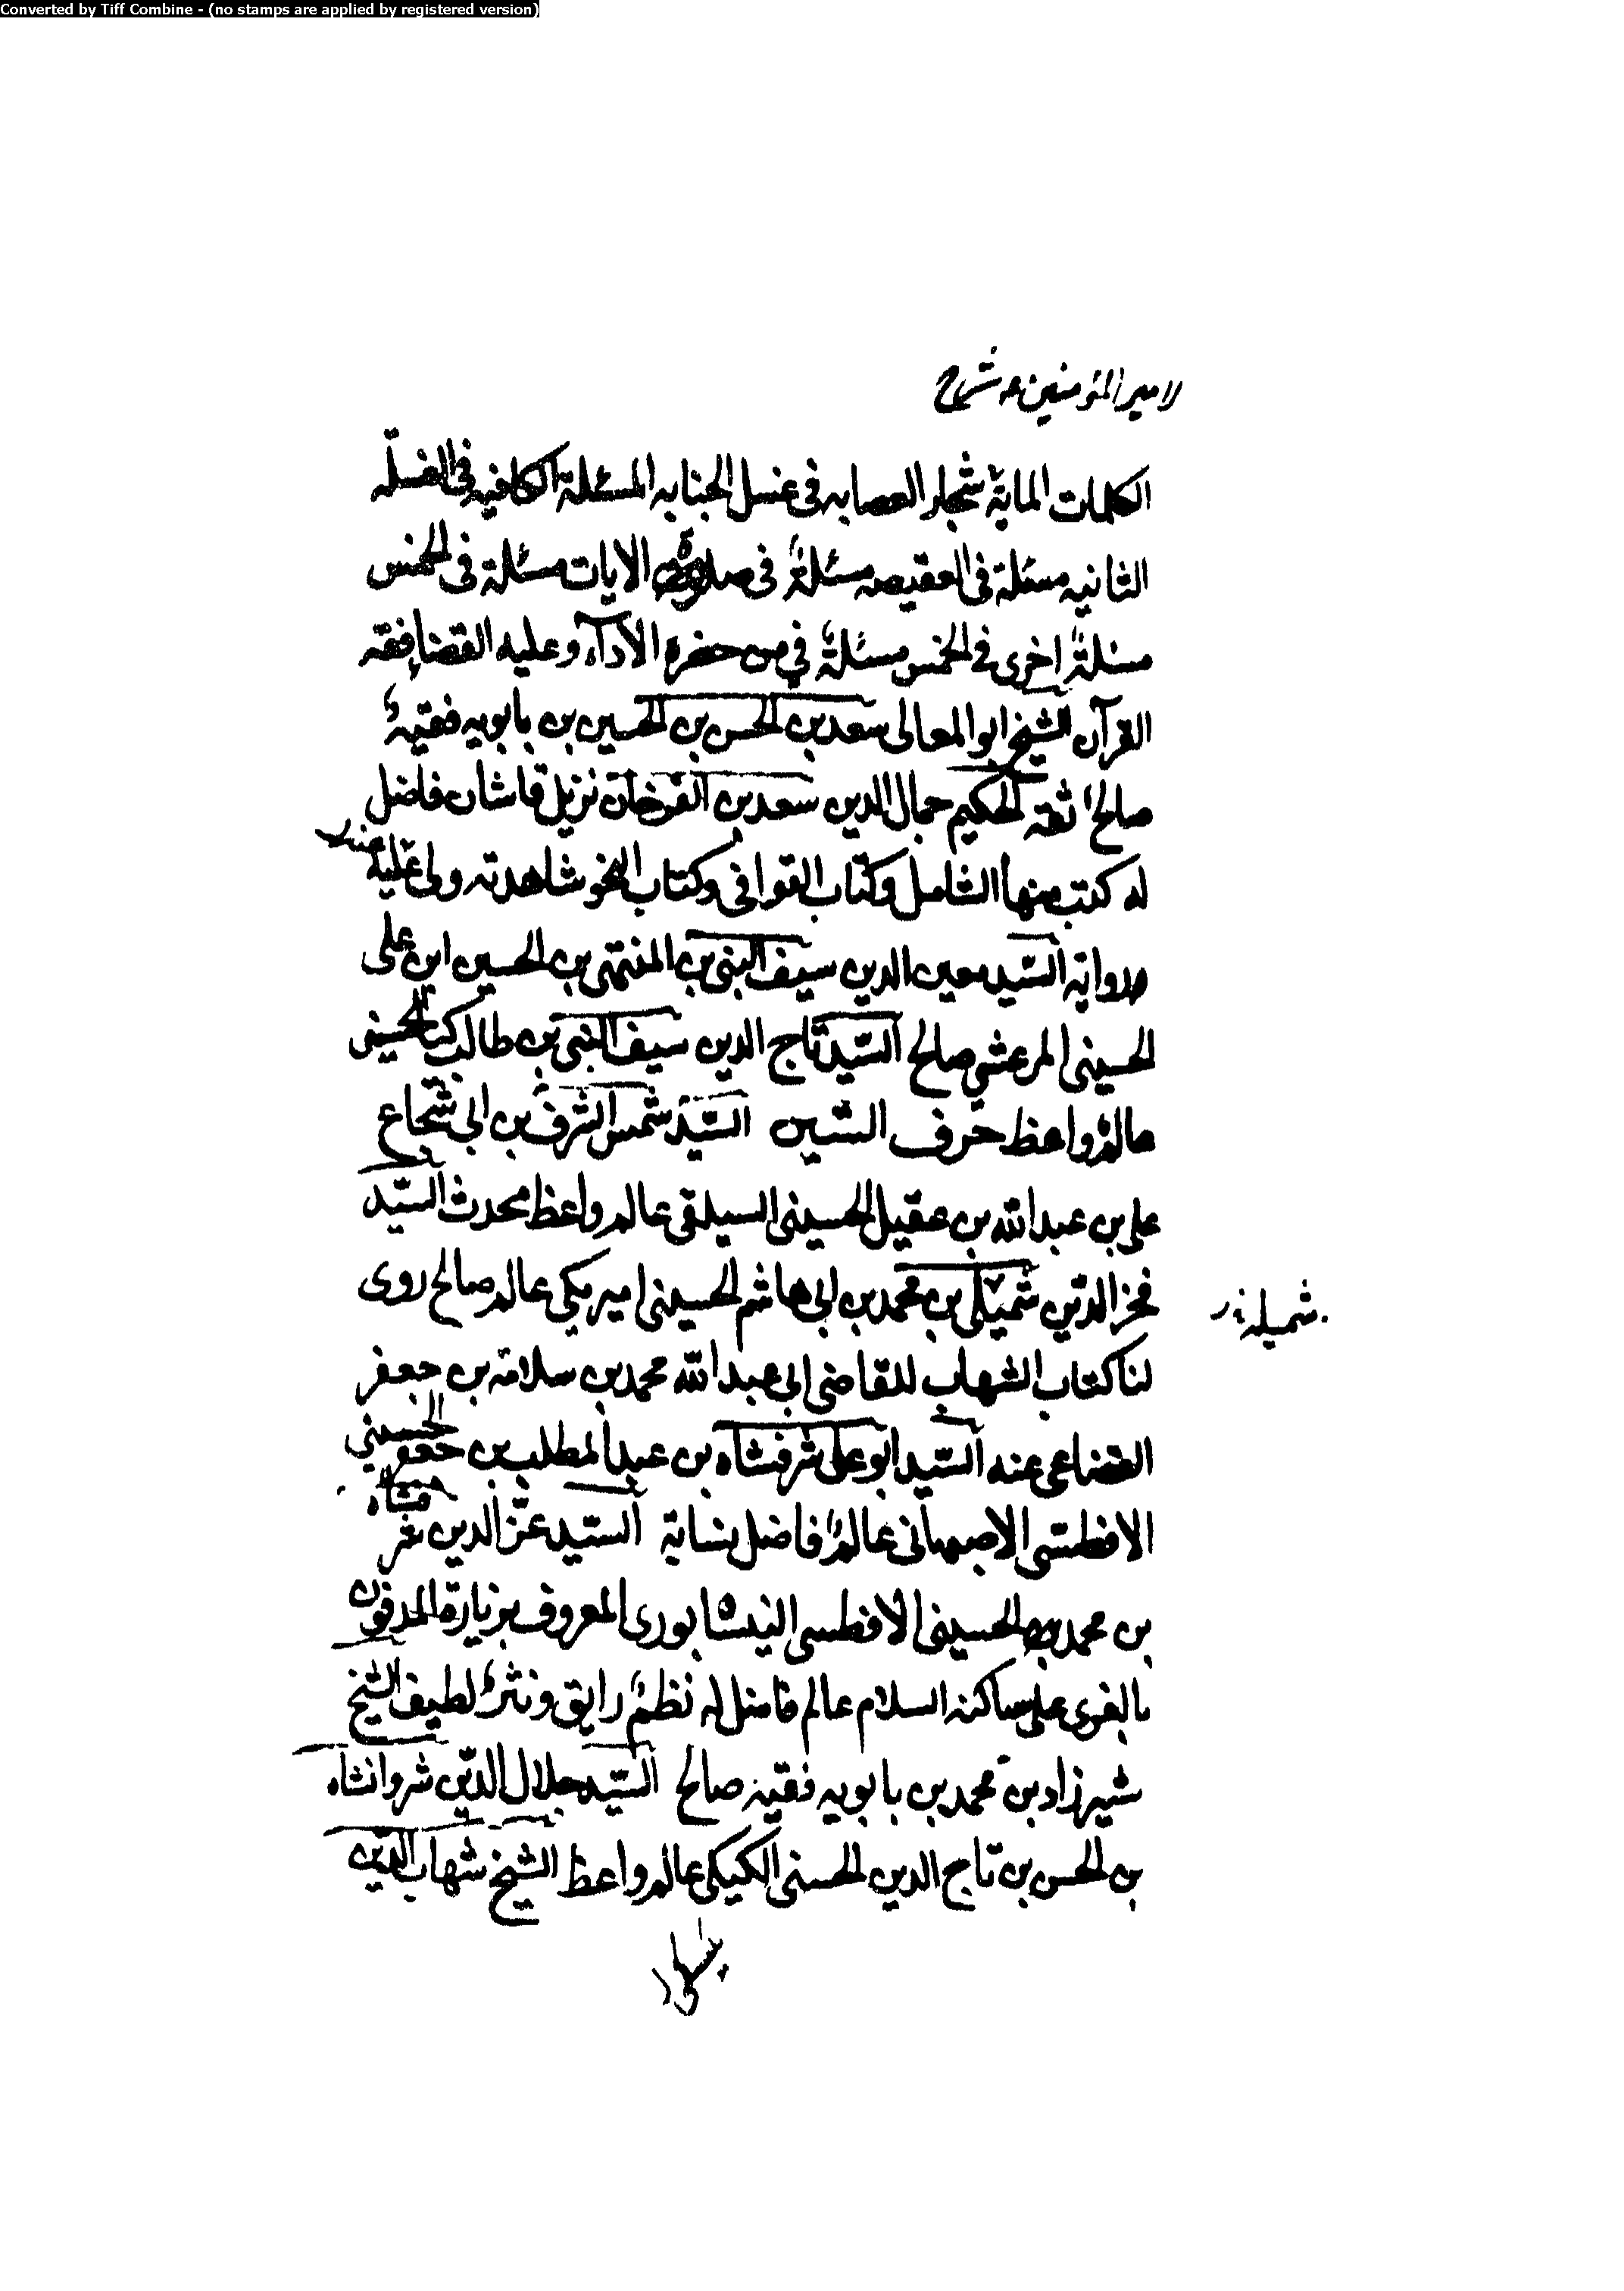 Converted by Tiff Combine - (no stamps are applied by registered version)
لامير المؤمنين ع شرح
الكلمات الماية شجار العصابه فى غسل الجنابه المسئلة الكافيه فى الغسلة
الثانيه مسئلة فى العقيصه مسئلةٌ فى صلوة الايات مسئلة فى الخمس
مسئلةٌ اخرى فى الخمس مسئلةٌ فى من حضره الاداء وعليه القضا فقه
القرآن الشيخ ابو المعالى سعد بن الحسن بن الحسين بن بابويه فقيهٌ
صالح ثقه الحكيم جمال الدين سعد بن الفرخان نزيل قاشان فاضل
له كتب منها الشامل وكتاب القوافى وكتاب النحو شاهدته ولى عليه
رواية السّيد معين الدين سيف النبى بن المنتهى بن الحسين ابن على
الحسينى المرعشى صالح السّيد تاج الدين سيف النبى بن طالب كيا الحسينى
عالم واعظ حرف الشين السّيد شمس الشرف بن ابى شجاع
على بن عبد الله بن عقيل الحسينى السيلقى عالم واعظ محدث السّيد
فخر الدّين شميلى بن محمد بن ابى هاشم الحسينى امير مكى عالم صالح روى
شميلة
لنا كتاب الشهاب للقاضى ابى عبد الله محمد بن سلامة بن جعفر
القضاعى عنه السّيد ابو على شرفشاه بن عبد المطلب بن جعفر الحسينى
الافطسى الاصبهانى عالم فاضل نسابة السّيد عزّ الدين شرفشاه
بن محمد الحسينى الافطسى النيشابورى المعروف بزيارة المدفون
بالغرى على ساكنه السلام عالم فاضل له نظمٌ رايق ونثرٌ لطيف الشيخ
شيرزاد بن محمد بن بابويه فقيه صالح السّيد جلال الدّين شروانشاه
بن الحسن بن تاج الدين الحسنى الكيكى عالم واعظ الشيخ شهاب الدّين